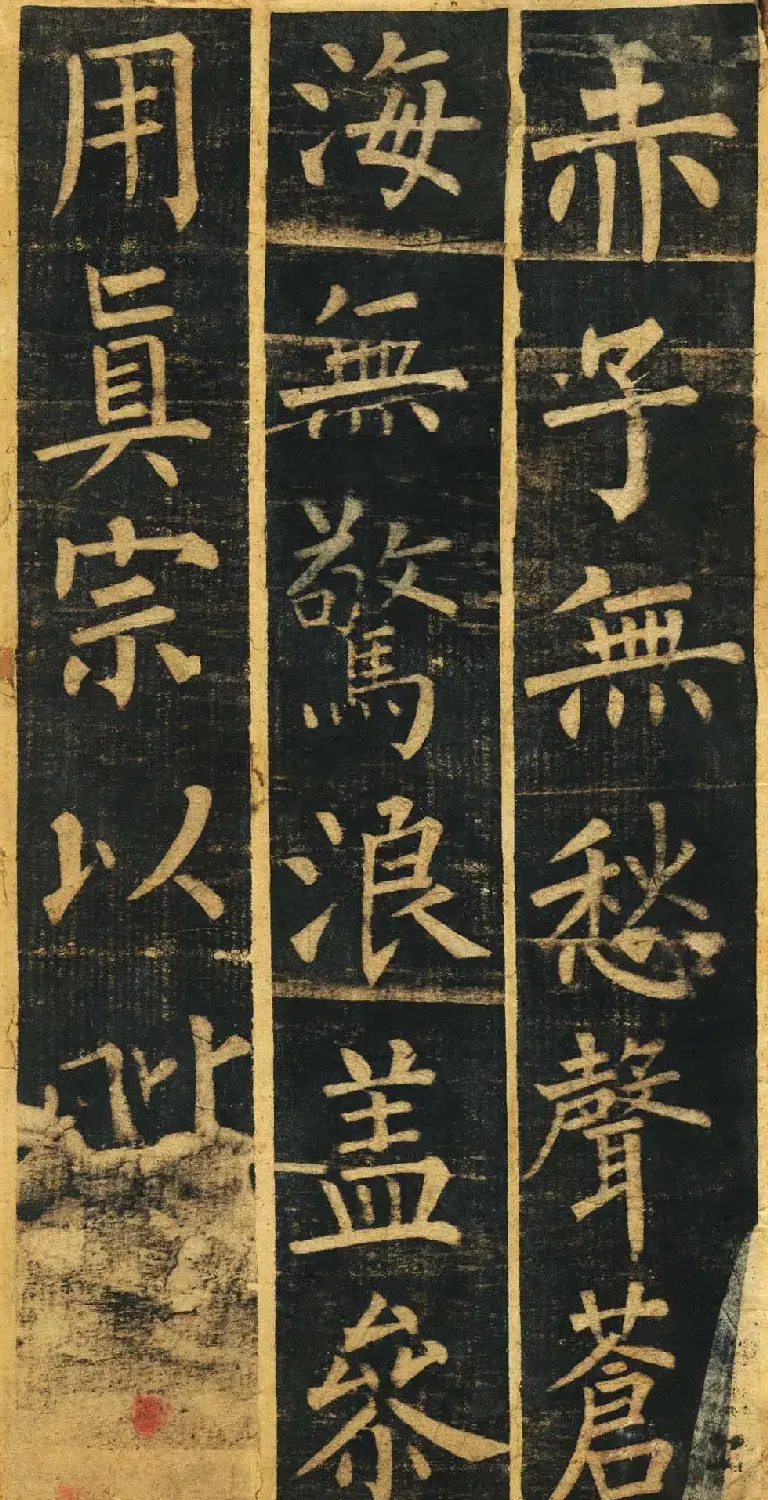 赤子無愁聲蒼
海無驚浪盖參
用眞宗以